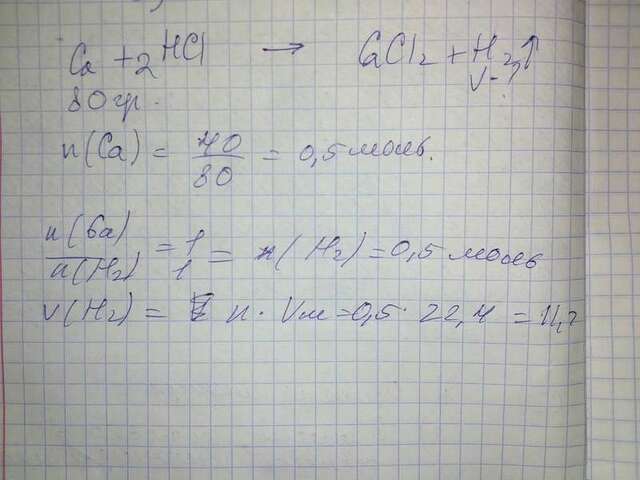 Ca + 2HCl → CaCl2 + H2↑
80 гр. V-?
n(Ca) = 40/80 = 0,5 моль.
n(Ca)/n(H2) = 1/1 = n(H2) = 0,5 моль
v(H2) = n · Vм = 0,5 · 22,4 = 11,2